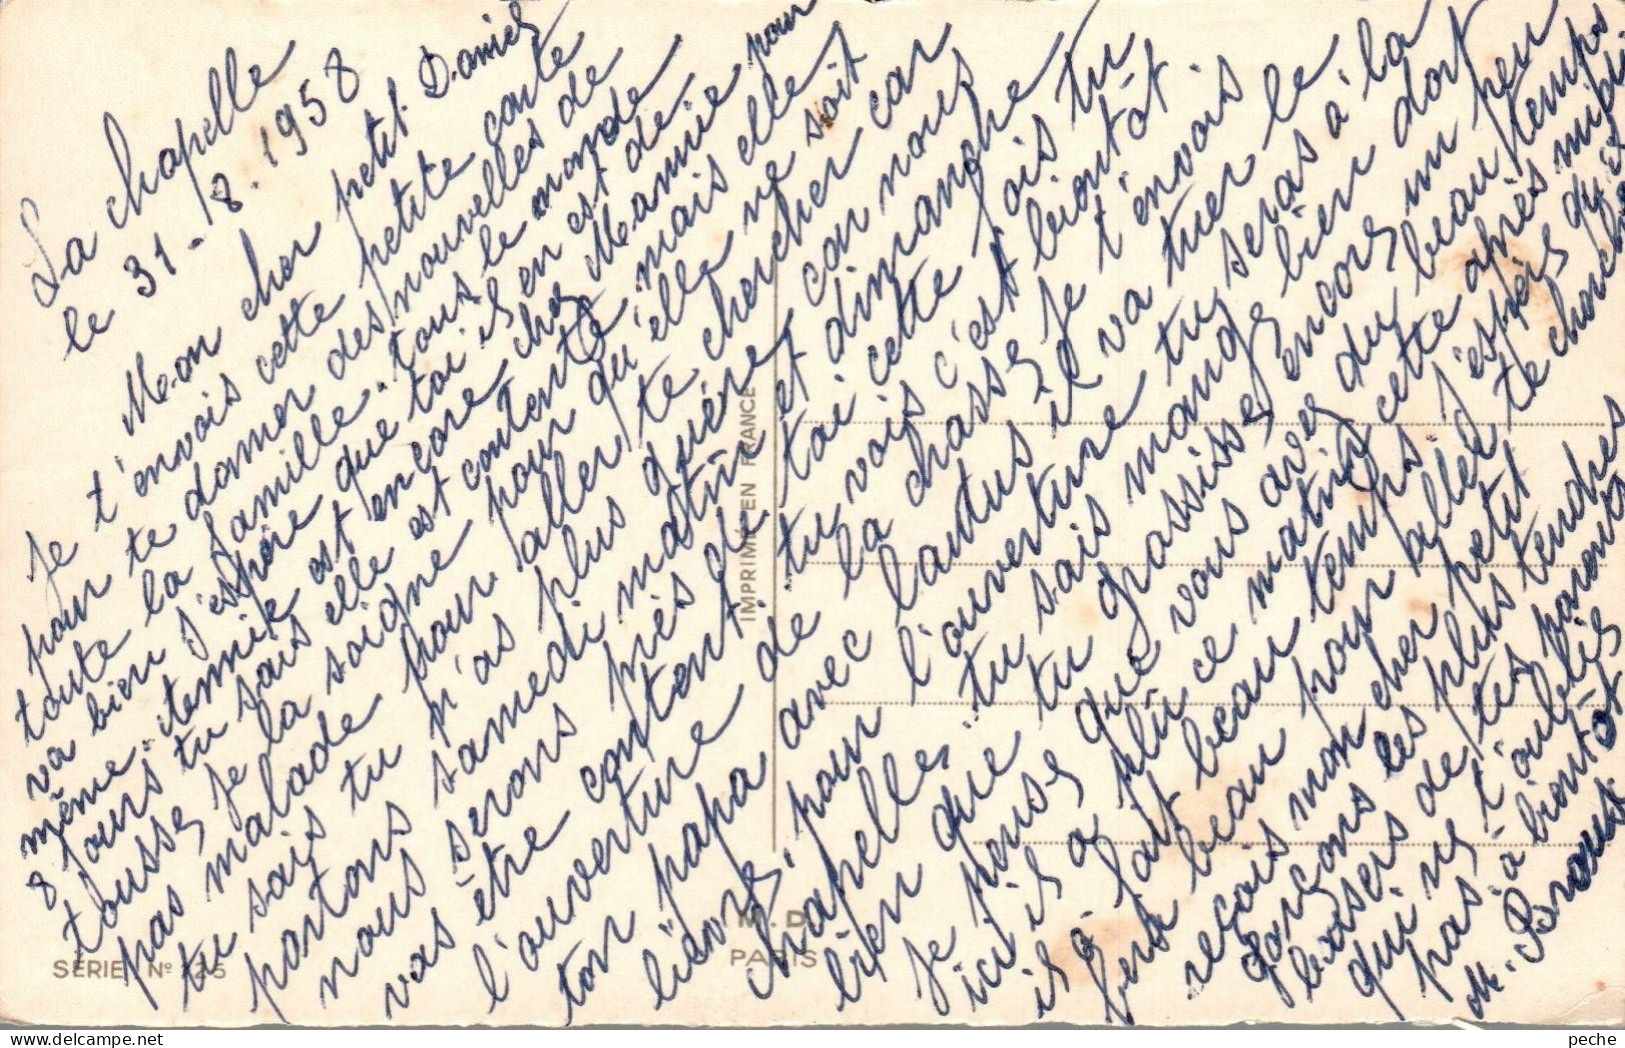 La chapelle
le 31-8.1958
Mon cher petit Daniel
Je t'envois cette petite carte
pour te donner des nouvelles de
toute la famille. tous le monde
va bien j'espère que toi il en est de
même. est encore chez Mamie pour
8 jours tu sais elle est contente mais elle
tousse, je la soigne pour qu'elle ne soit
pas malade pour aller te chercher car
tu sais tu n'as plus guère, car nous
partons samedi matin et dimanche
nous serons près de toi cette fois tu
vas être content tu vois c'est bientôt
l'ouverture de la chasse je t'envois
ton papa avec lantus il va tuer le
lièvre, pour l'ouverture tu seras à la
chapelle. tu sais mange bien dort
bien que tu grassisse encore un peu
Je pense que vous avez du beau temps
ici il a plû ce matin cette après midi
il a fait beau temps j'espère qu'il
fera beau pour aller te chercher
reçois mon cher petit
garçons les plus tendres
baisers de tes parents
qui ne t'oublie
pas à bientôt
M. Broust.
IMPRIMÉ EN FRANCE
M.D.
PARIS
SÉRIE Nº 125
peche